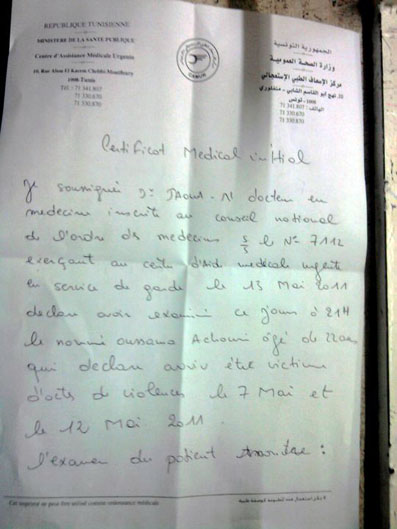 REPUBLIQUE TUNISIENNE
MINISTERE DE LA SANTE PUBLIQUE
Centre d'Assistance Médicale Urgente
10, Rue Abou El Kacem Chebbi Montfleury
1008 Tunis
Tél. : 71 341.807
71 330.870
71 330.670
CAMUM
الجمهورية التونسية
وزارة الصحة العمومية
مركز الإسعاف الطبي الإستعجالي
10، نهج أبو القاسم الشابي - منفلوري
1008 - تونس
الهاتف : 71 341.807
71 330.870
71 330.670
Certificat Medical initial
Je soussigné Dr docteur en
medecine inscrit au conseil national
de l'ordre des medecins le N° 7112
exerçant au centre d'Aide medicale urgente
en service de garde le 13 Mai 2011
declare avoir examiné ce jour à 21H
le nommé oussama Achouri âgé de 22 ans
qui declare avoir été victime
d'actes de violences le 7 Mai et
le 12 Mai 2011.
l'examen du patient :
Cet imprimé ne peut être utilisé comme ordonnance médicale